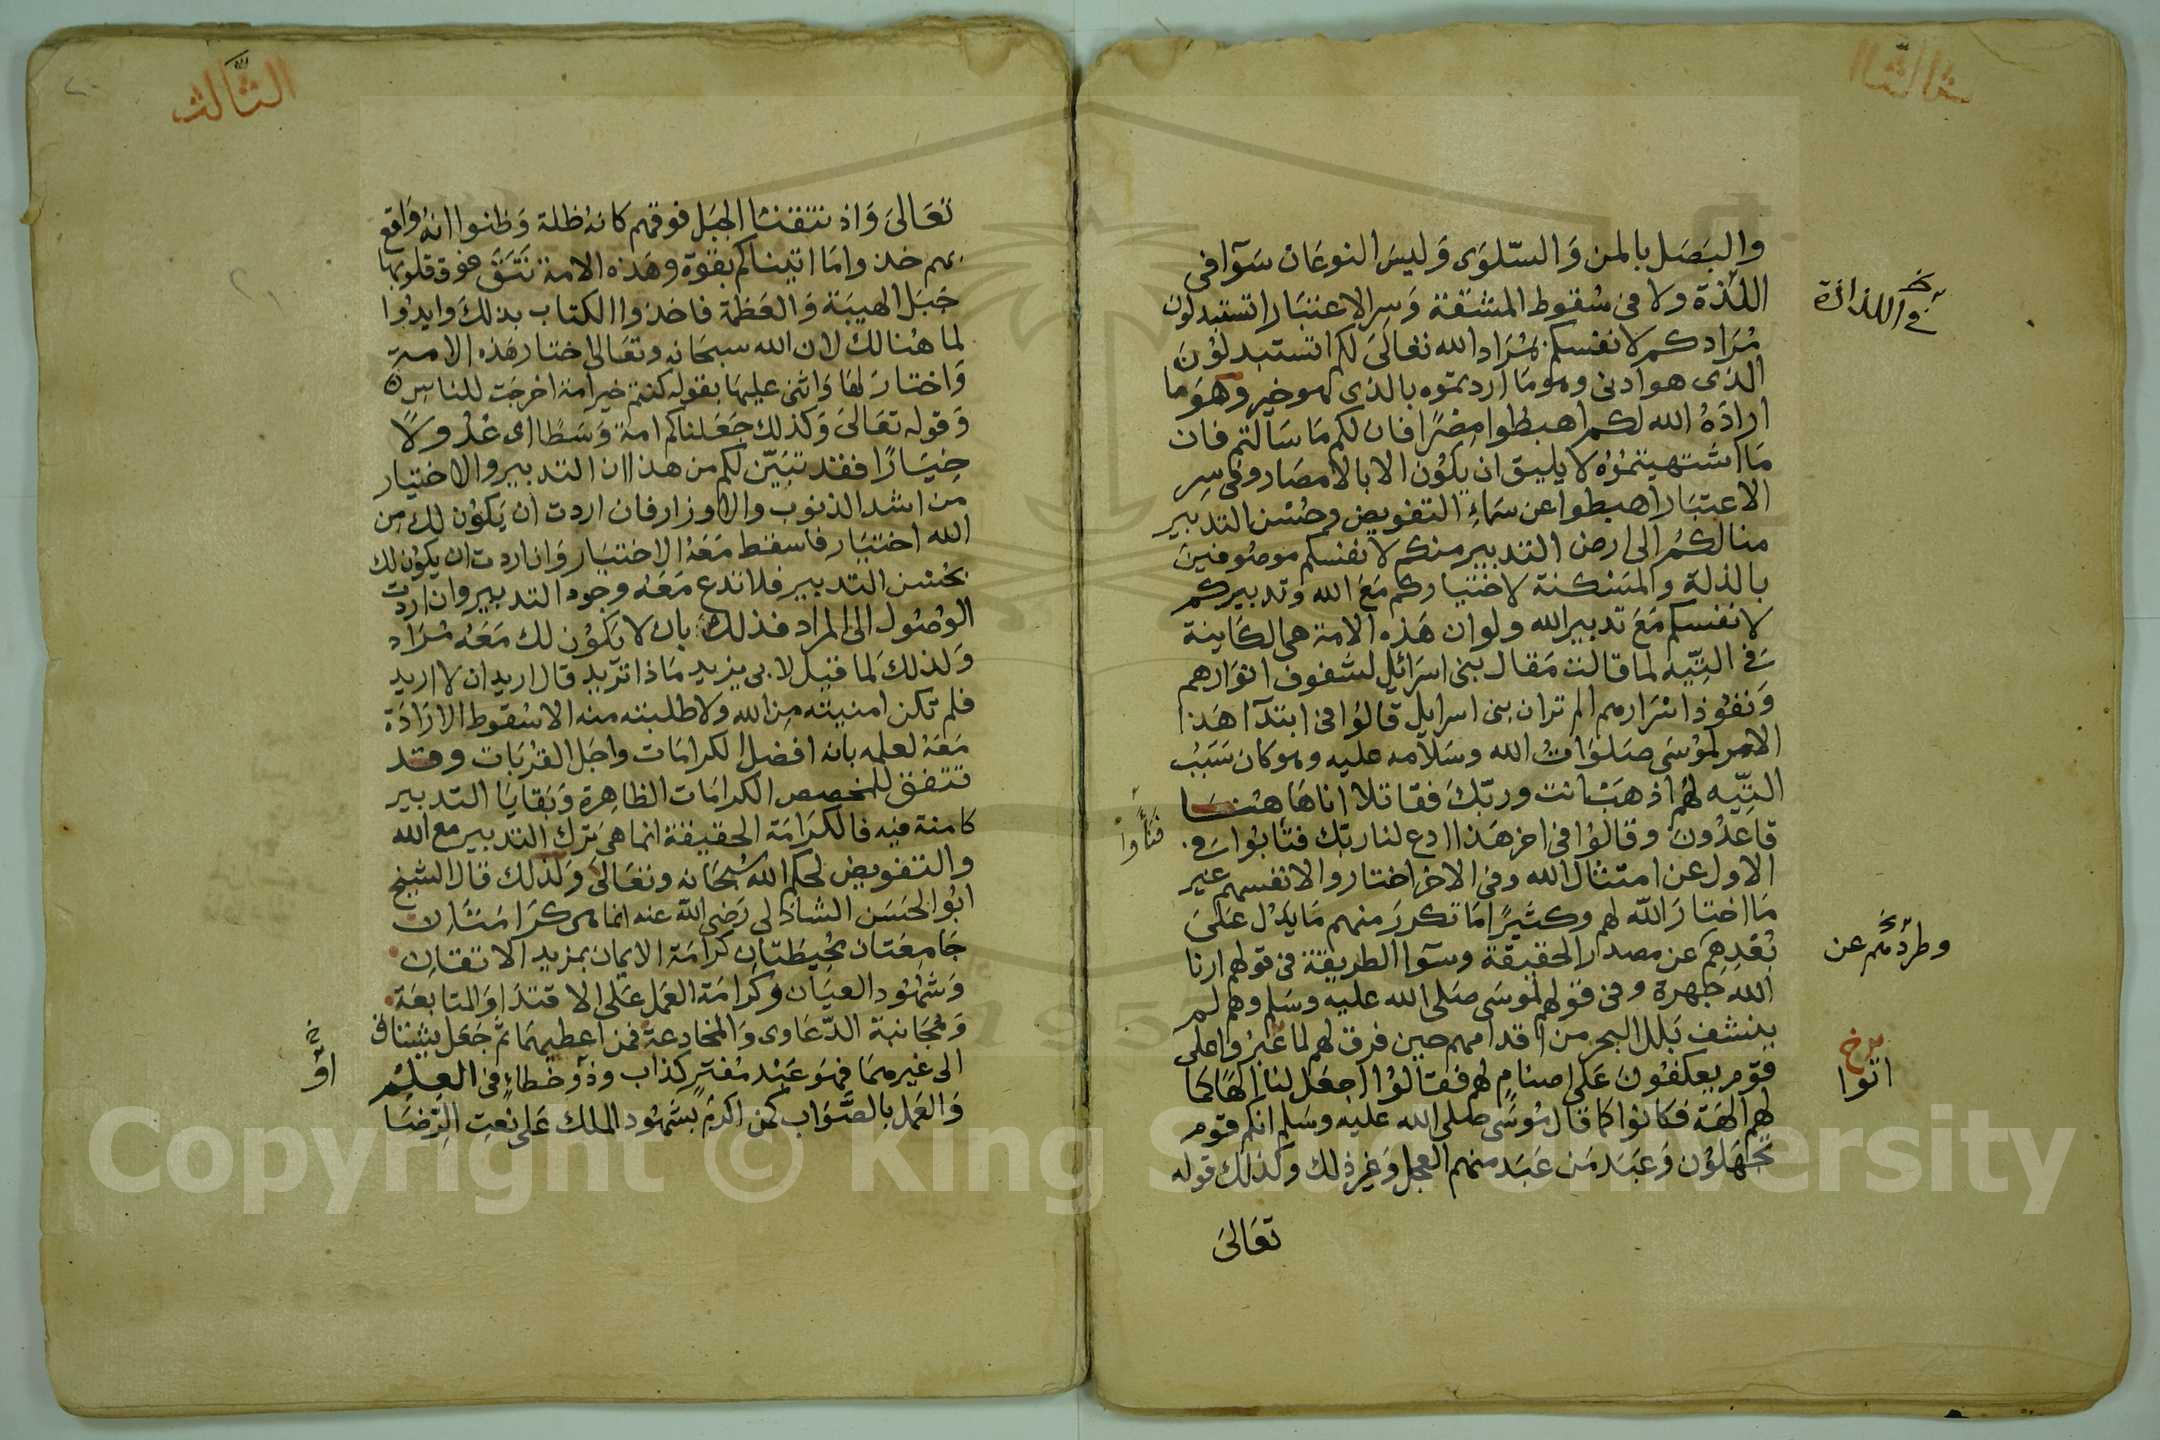 والبصل بالمن والسلوى وليس النوعان سوآ فى
اللذة ولا فى سقوط المشقة وسر الاعتبار اتستبدلون
فى اللذاذة
مرادكم لانفسكم بمراد الله تعالى لكم اتستبدلون
الذى هو ادنى وهو ما اردتموه بالذى هو خير وهو ما
اراده الله لكم اهبطوا مصرا فان لكم ما سالتم فان
ما اشتهيتموه لا يليق ان يكون الا بالامصار وفى سر
الاعتبار اهبطوا عن سماء التفويض وحسن التدبير
منا لكم الى ارض التدبير منكم لانفسكم موصوفين
بالذلة والمسكنة لاختياركم مع الله وتدبيركم
لانفسكم مع تدبير الله ولو ان هذه الامة هى الكاينة
فى التيه لما قالت مقال بنى اسرائيل لشفوف انوارهم
ونفوذ اسرارهم الم تر ان بنى اسرايل قالوا فى ابتدآ هذا
الامر لموسى صلوات الله وسلامه عليه وهو كان سبب
التيه لهم اذهب انت وربك فقاتلا انا هاهنا
قاعدون وقالوا فى اخر هذا ادع لنا ربك فتابوا فى
الاول عن امتثال الله وفى الاخر اختاروا لانفسهم غير
ما اختار الله لهم وكثيرا ما تكرر منهم ما يدل على
بعدهم عن مصدر الحقيقة وسوآ الطريقة فى قولهم ارنا
وطردهم عن
الله جهرة وفى قولهم لموسى صلى الله عليه وسلم وهم لم
ينشف بلل البحر من اقدامهم حين فرق لهم لما عبروا على
قوم يعكفون على اصنام لهم فقالوا اجعل لنا الها كما
اتوا
لهم الهة فكانوا كما قال موسى صلى الله عليه وسلم انكم قوم
تجهلون وعبد من عبد منهم العجل وغير ذلك وكذلك قوله
تعالى
الثالث
تعالى واذ نتقنا الجبل فوقهم كانه ظلة وظنوا انه واقع
بهم خذوا ما اتيناكم بقوة وهذه الامة نتق فوق قلوبها
جبل الهيبة والعظمة فاخذوا الكتاب بذلك وايدوا
لما هنالك لان الله سبحانه وتعالى اختار هذه الامة
واختار لها واثنى عليها بقوله كنتم خير امة اخرجت للناس
وقوله تعالى وكذلك جعلناكم امة وسطا اى عدولا
خيارا فقد تبين لكم من هذا ان التدبير والاختيار
من اشد الذنوب والاوزار فان اردت ان يكون لك من
الله اختيار فاسقط معه الاختيار وان اردت ان يكون لك
بحسن التدبير فلا تدع معه وجود التدبير وان اردت
الوصول الى المراد فذلك بان لا يكون لك معه مراد
ولذلك لما قيل لابى يزيد ماذا تريد قال اريد ان لا اريد
فلم تكن امنيته من الله ولا طلبته منه الا سقوط الارادة
معه لعلمه بانه افضل الكرامات واجل القربات وقد
تتفق للمخصص الكرامات الظاهرة وبقايا التدبير
كامنة فيه فالكرامة الحقيقة انما هى ترك التدبير مع الله
والتفويض لحكم الله سبحانه وتعالى ولذلك قال الشيخ
ابو الحسن الشاذلى رضى الله عنه انما هى كرامتان
جامعتان محيطتان كرامة الايمان بمزيد الاتقان
وشهود العيان وكرامة العمل على الاقتدا والمتابعة
ومجانبة الدعاوى والمخادعة فمن اعطيهما ثم جعل يشتاق
الى غيرهما فهو عبد مفتر كذاب وذو خطاء فى العلم
او
والعمل بالصواب كمن اكرم بشهود الملك على نعت الرضا
Copyright © King Saud University